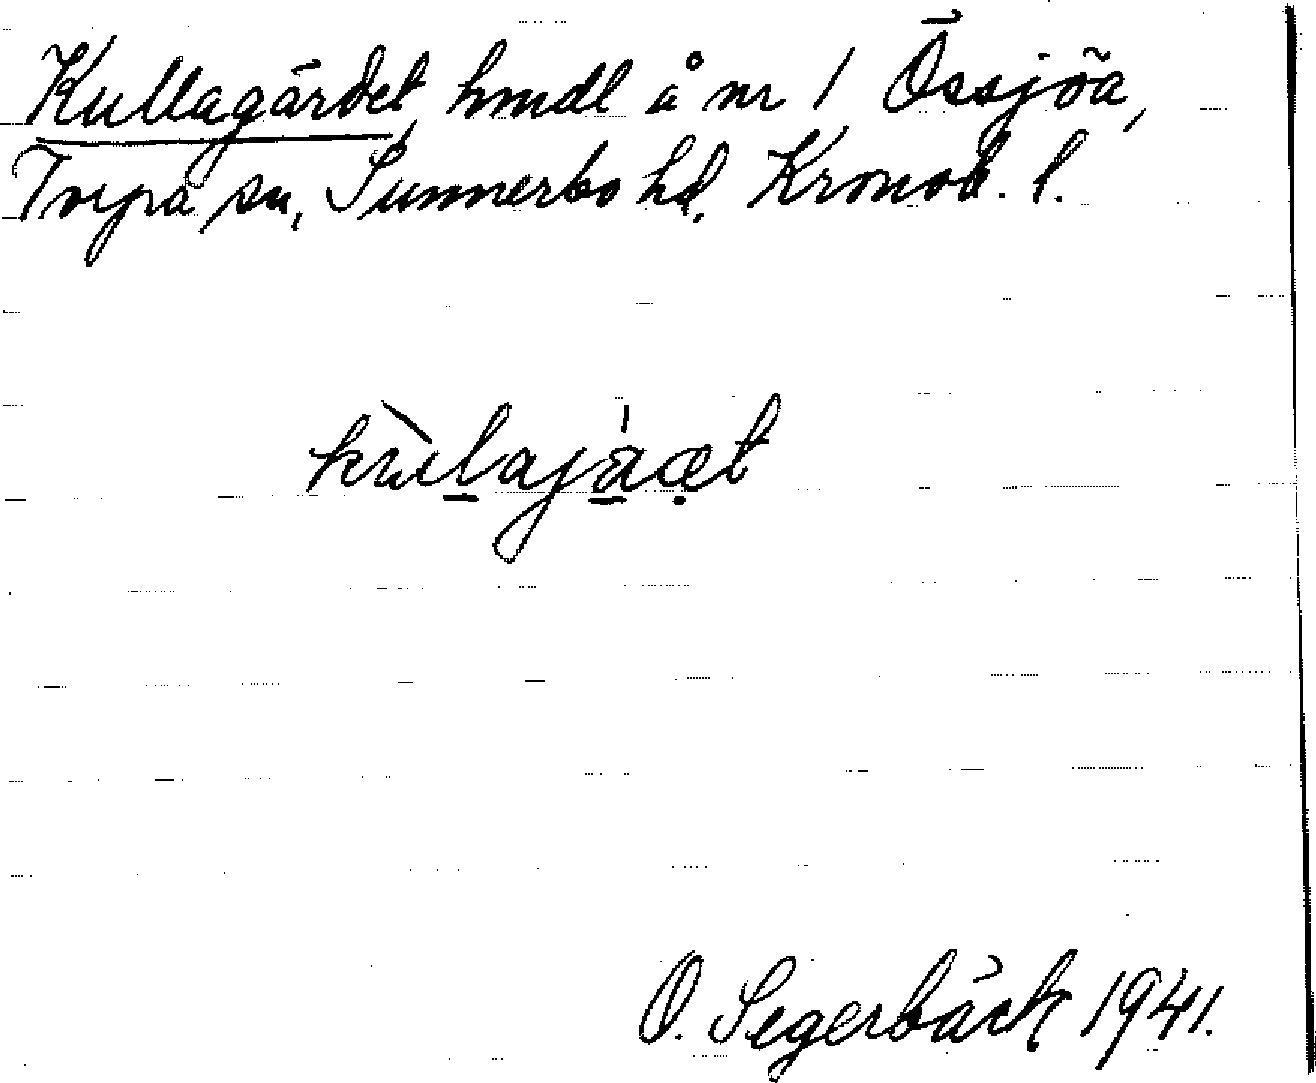 Kullagärdet, hmdl å nr 1 Össjöa,
Torpa sn, Sunnerbo hd, Kronob. l.
kùlajáæt
O. Segerbäck 1941.